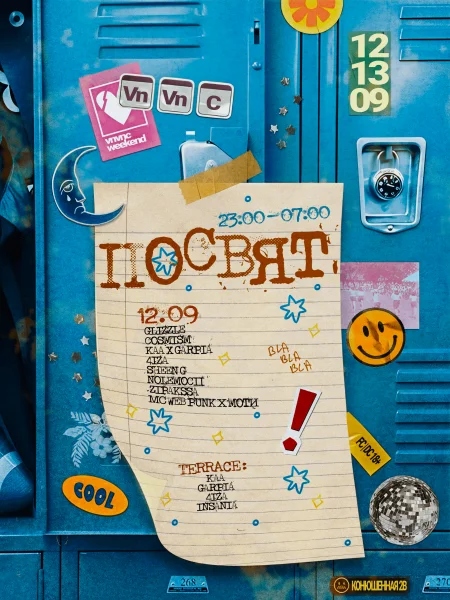 12
13
09
Vn Vn C
vnvnc
weekend
23:00-07:00
ПОСВЯТ
12.09
GLIZZLE
COSMISM
KAA X GARPIA
4IZA
SHEEN G
NOLEMOCII
ZIPAKSSA
MC WEB PUNK X MOTH
BLA
BLA
BLA
TERRACE:
KAA
GARPIA
4IZA
INSANIA
FC/DC 18+
COOL
268
КОНЮШЕННАЯ 2В
270